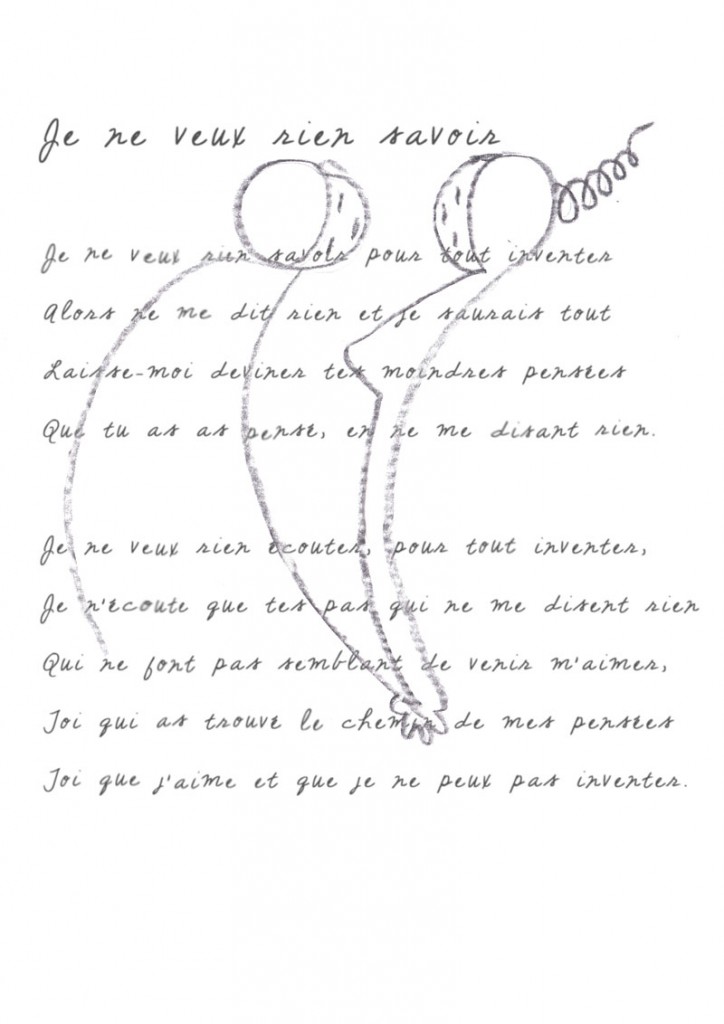 Je ne veux rien savoir
Je ne veux rien savoir pour tout inventer
Alors ne me dit rien et je saurais tout
Laisse-moi deviner tes moindres pensées
Que tu as as pensé, en ne me disant rien.
Je ne veux rien écouter, pour tout inventer,
Je n'écoute que tes pas qui ne me disent rien
Qui ne font pas semblant de venir m'aimer,
Toi qui as trouvé le chemin de mes pensées
Toi que j'aime et que je ne peux pas inventer.